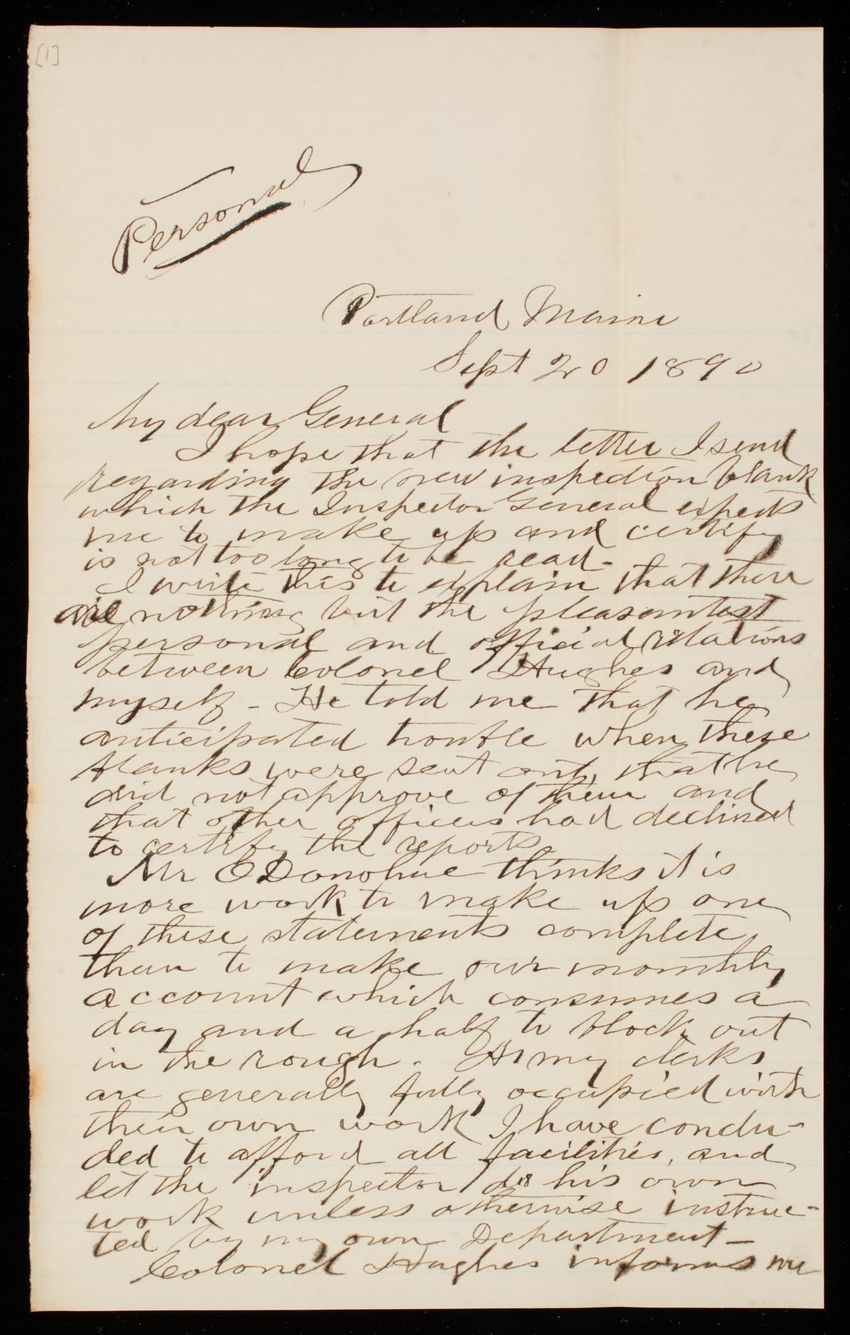 [1]
Personal
Portland, Maine
Sept 20 1890
My dear General
I hope that the letter I send
regarding the new inspection blank
which the Inspector General expects
me to make up and certify
is not too long to be read.
I write this to explain that there
are nothing but the pleasantest
personal and official relations
between Colonel Hughes and
myself - He told me that he
anticipated trouble when these
blanks were sent out, that he
did not approve of them and
that other officers had declined
to certify the reports.
Mr O'Donohue thinks it is
more work to make up one
of these statements complete,
than to make our monthly
account which consumes a
day and a half to block out
in the rough. As my clerks
are generally fully occupied with
their own work I have conclu-
ded to afford all facilities, and
let the inspector do his own
work unless otherwise instruc-
ted by my own Department -
Colonel Hughes informs me